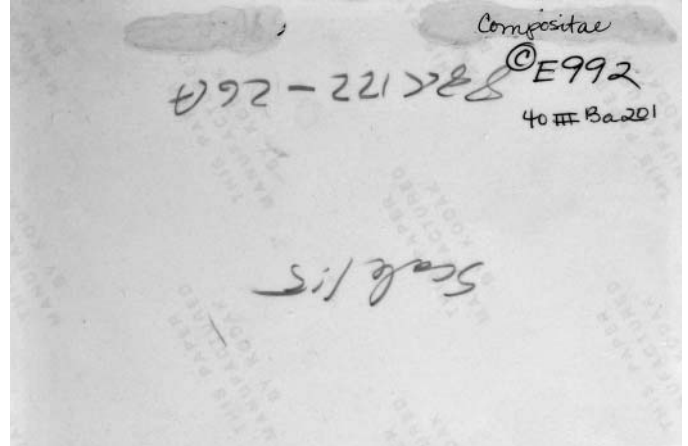 Compositae
©E992
40 III Ba201
88C122-26A
Scale 1:5
THIS PAPER
MANUFACTURED
BY KODAK